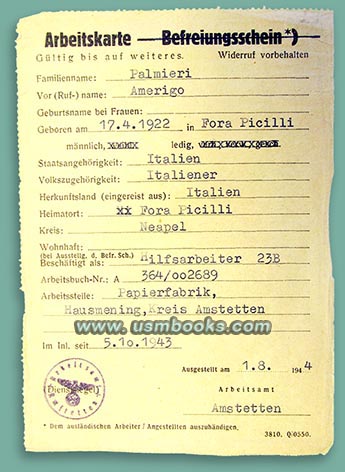 Arbeitskarte — Befreiungsschein *) —
Gültig bis auf weiteres. Widerruf vorbehalten
Familienname: Palmieri
Vor (Ruf-) name: Amerigo
Geburtsname bei Frauen:
Geboren am 17.4.1922 in Fora Picilli
männlich, ledig,
Staatsangehörigkeit: Italien
Volkszugehörigkeit: Italiener
Herkunftsland (eingereist aus): Italien
Heimatort: xx Fora Picilli
Kreis: Neapel
Wohnhaft:
(bei Ausstellg. d. Befr. Sch.)
Beschäftigt als: Hilfsarbeiter 23B
Arbeitsbuch-Nr.: A 364/oo2689
Arbeitsstelle: Papierfabrik,
Hausmening, Kreis Amstetten
www.usmbooks.com
Im Inl. seit 5.1o.1943
Ausgestellt am 1.8. 1944
(Dienstsiegel) Arbeitsamt
Arbeitsamt Amstetten
Amstetten
* Dem ausländischen Arbeiter / Angestellten auszuhändigen. 3810. Q/0550.